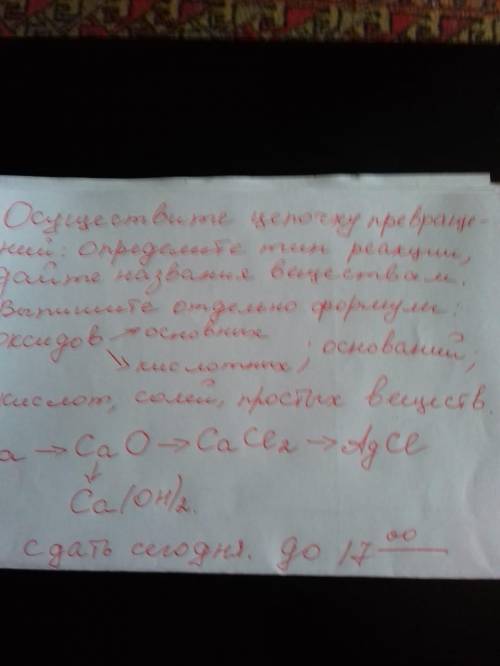 Осуществите цепочку превраще-
ний: определите тип реакции,
дайте названия веществам.
Выпишите отдельно формулы:
оксидов → основных ; оснований;
↘ кислотных;
кислот, солей, простых веществ.
a → CaO → CaCl₂ → AgCl
↓
Ca(OH)₂.
сдать сегодня. до 17 00